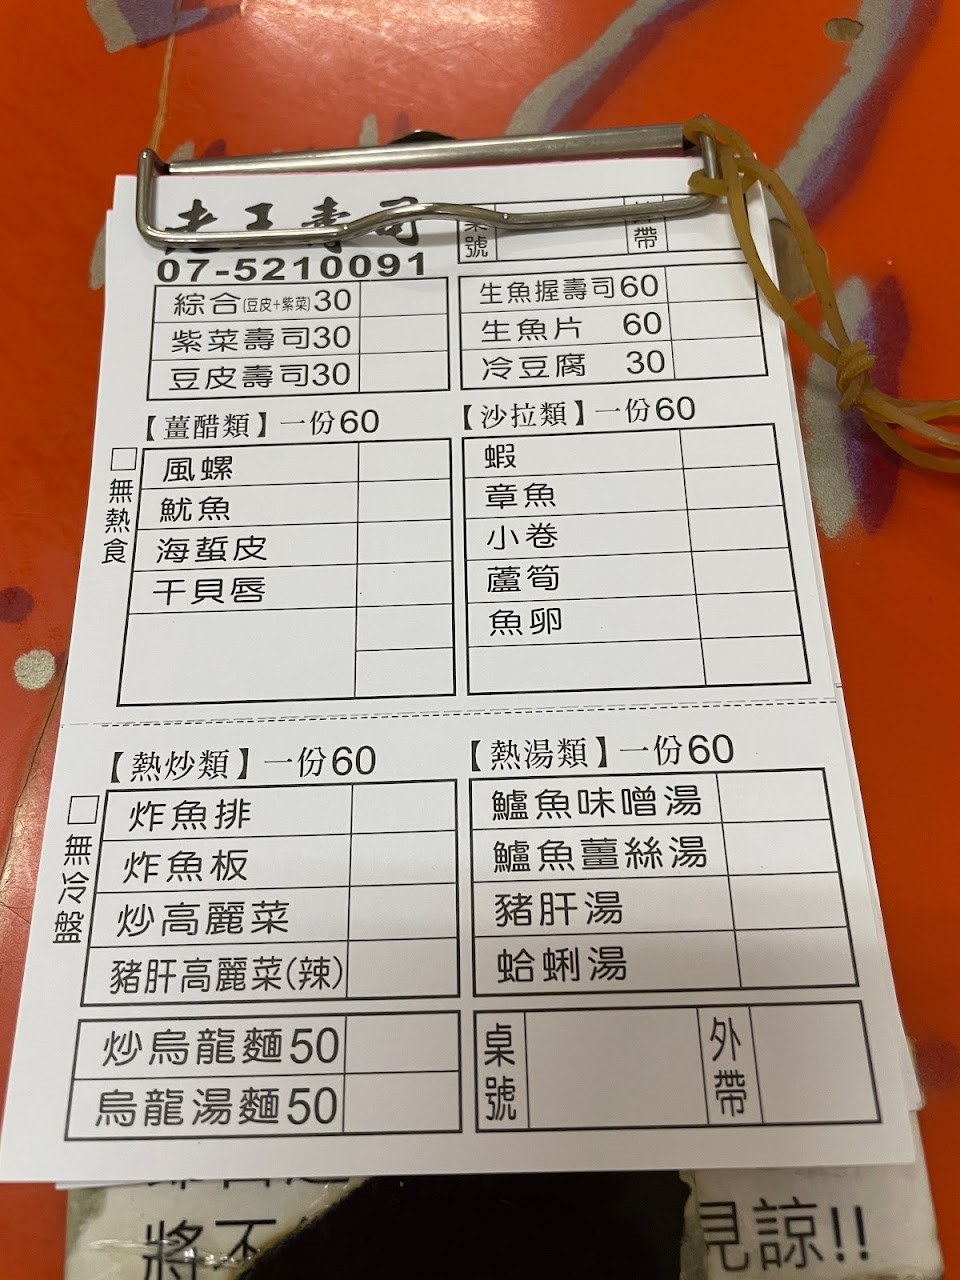 老王壽司
07-5210091
桌號
外帶
綜合(豆皮+紫菜)30
紫菜壽司30
豆皮壽司30
生魚握壽司60
生魚片 60
冷豆腐 30
【薑醋類】一份60
□無熱食
風螺
魷魚
海蜇皮
干貝唇
【沙拉類】一份60
蝦
章魚
小卷
蘆筍
魚卵
【熱炒類】一份60
□無冷盤
炸魚排
炸魚板
炒高麗菜
豬肝高麗菜(辣)
【熱湯類】一份60
鱸魚味噌湯
鱸魚薑絲湯
豬肝湯
蛤蜊湯
炒烏龍麵50
烏龍湯麵50
桌號
外帶
將不
見諒!!